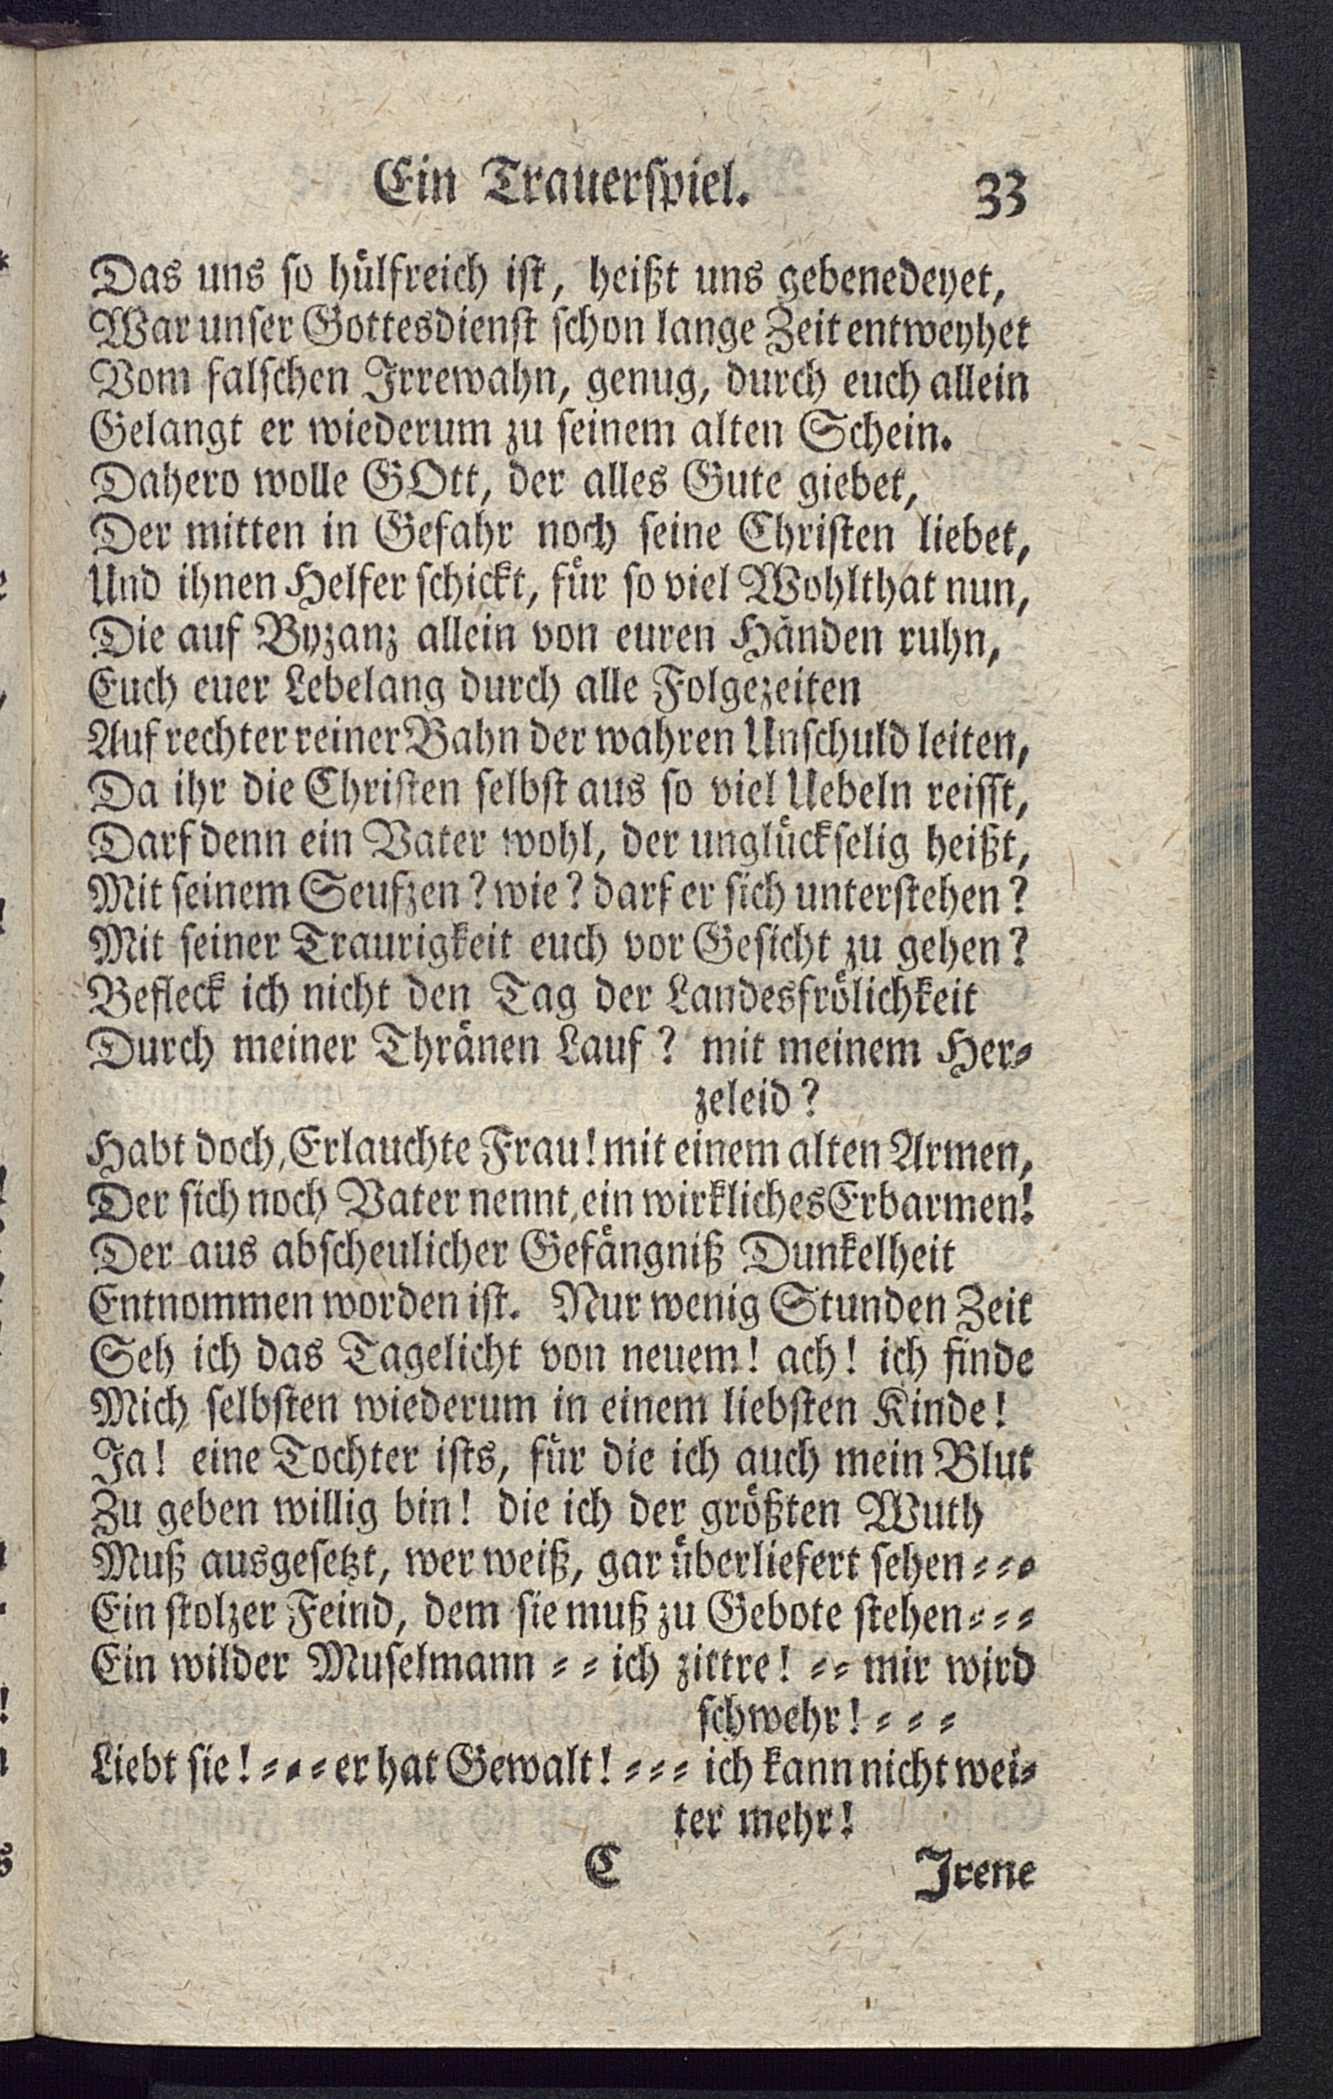 Ein Trauerspiel. 33
Das uns so hülfreich ist, heißt uns gebenedeyet,
War unser Gottesdienst schon lange Zeit entweyhet
Vom falschen Irrewahn, genug, durch euch allein
Gelangt er wiederum zu seinem alten Schein.
Dahero wolle GOtt, der alles Gute giebet,
Der mitten in Gefahr noch seine Christen liebet,
Und ihnen Helfer schickt, für so viel Wohlthat nun,
Die auf Byzanz allein von euren Händen ruhn,
Euch euer Lebelang durch alle Folgezeiten
Auf rechter reiner Bahn der wahren Unschuld leiten,
Da ihr die Christen selbst aus so viel Uebeln reisst,
Darf denn ein Vater wohl, der unglückselig heißt,
Mit seinem Seufzen? wie? darf er sich unterstehen?
Mit seiner Traurigkeit euch vor Gesicht zu gehen?
Befleck ich nicht den Tag der Landesfrölichkeit
Durch meiner Thränen Lauf? mit meinem Her-
zeleid?
Habt doch, Erlauchte Frau! mit einem alten Armen,
Der sich noch Vater nennt, ein wirkliches Erbarmen!
Der aus abscheulicher Gefängniß Dunkelheit
Entnommen worden ist. Nur wenig Stunden Zeit
Seh ich das Tagelicht von neuem! ach! ich finde
Mich selbsten wiederum in einem liebsten Kinde!
Ja! eine Tochter ists, für die ich auch mein Blut
Zu geben willig bin! die ich der größten Wuth
Muß ausgesetzt, wer weiß, gar überliefert sehen - - -
Ein stolzer Feind, dem sie muß zu Gebote stehen - - -
Ein wilder Muselmann - - ich zittre! - - mir wird
schwehr! - - -
Liebt sie! - - - er hat Gewalt! - - - ich kann nicht wei-
ter mehr!
C Irene